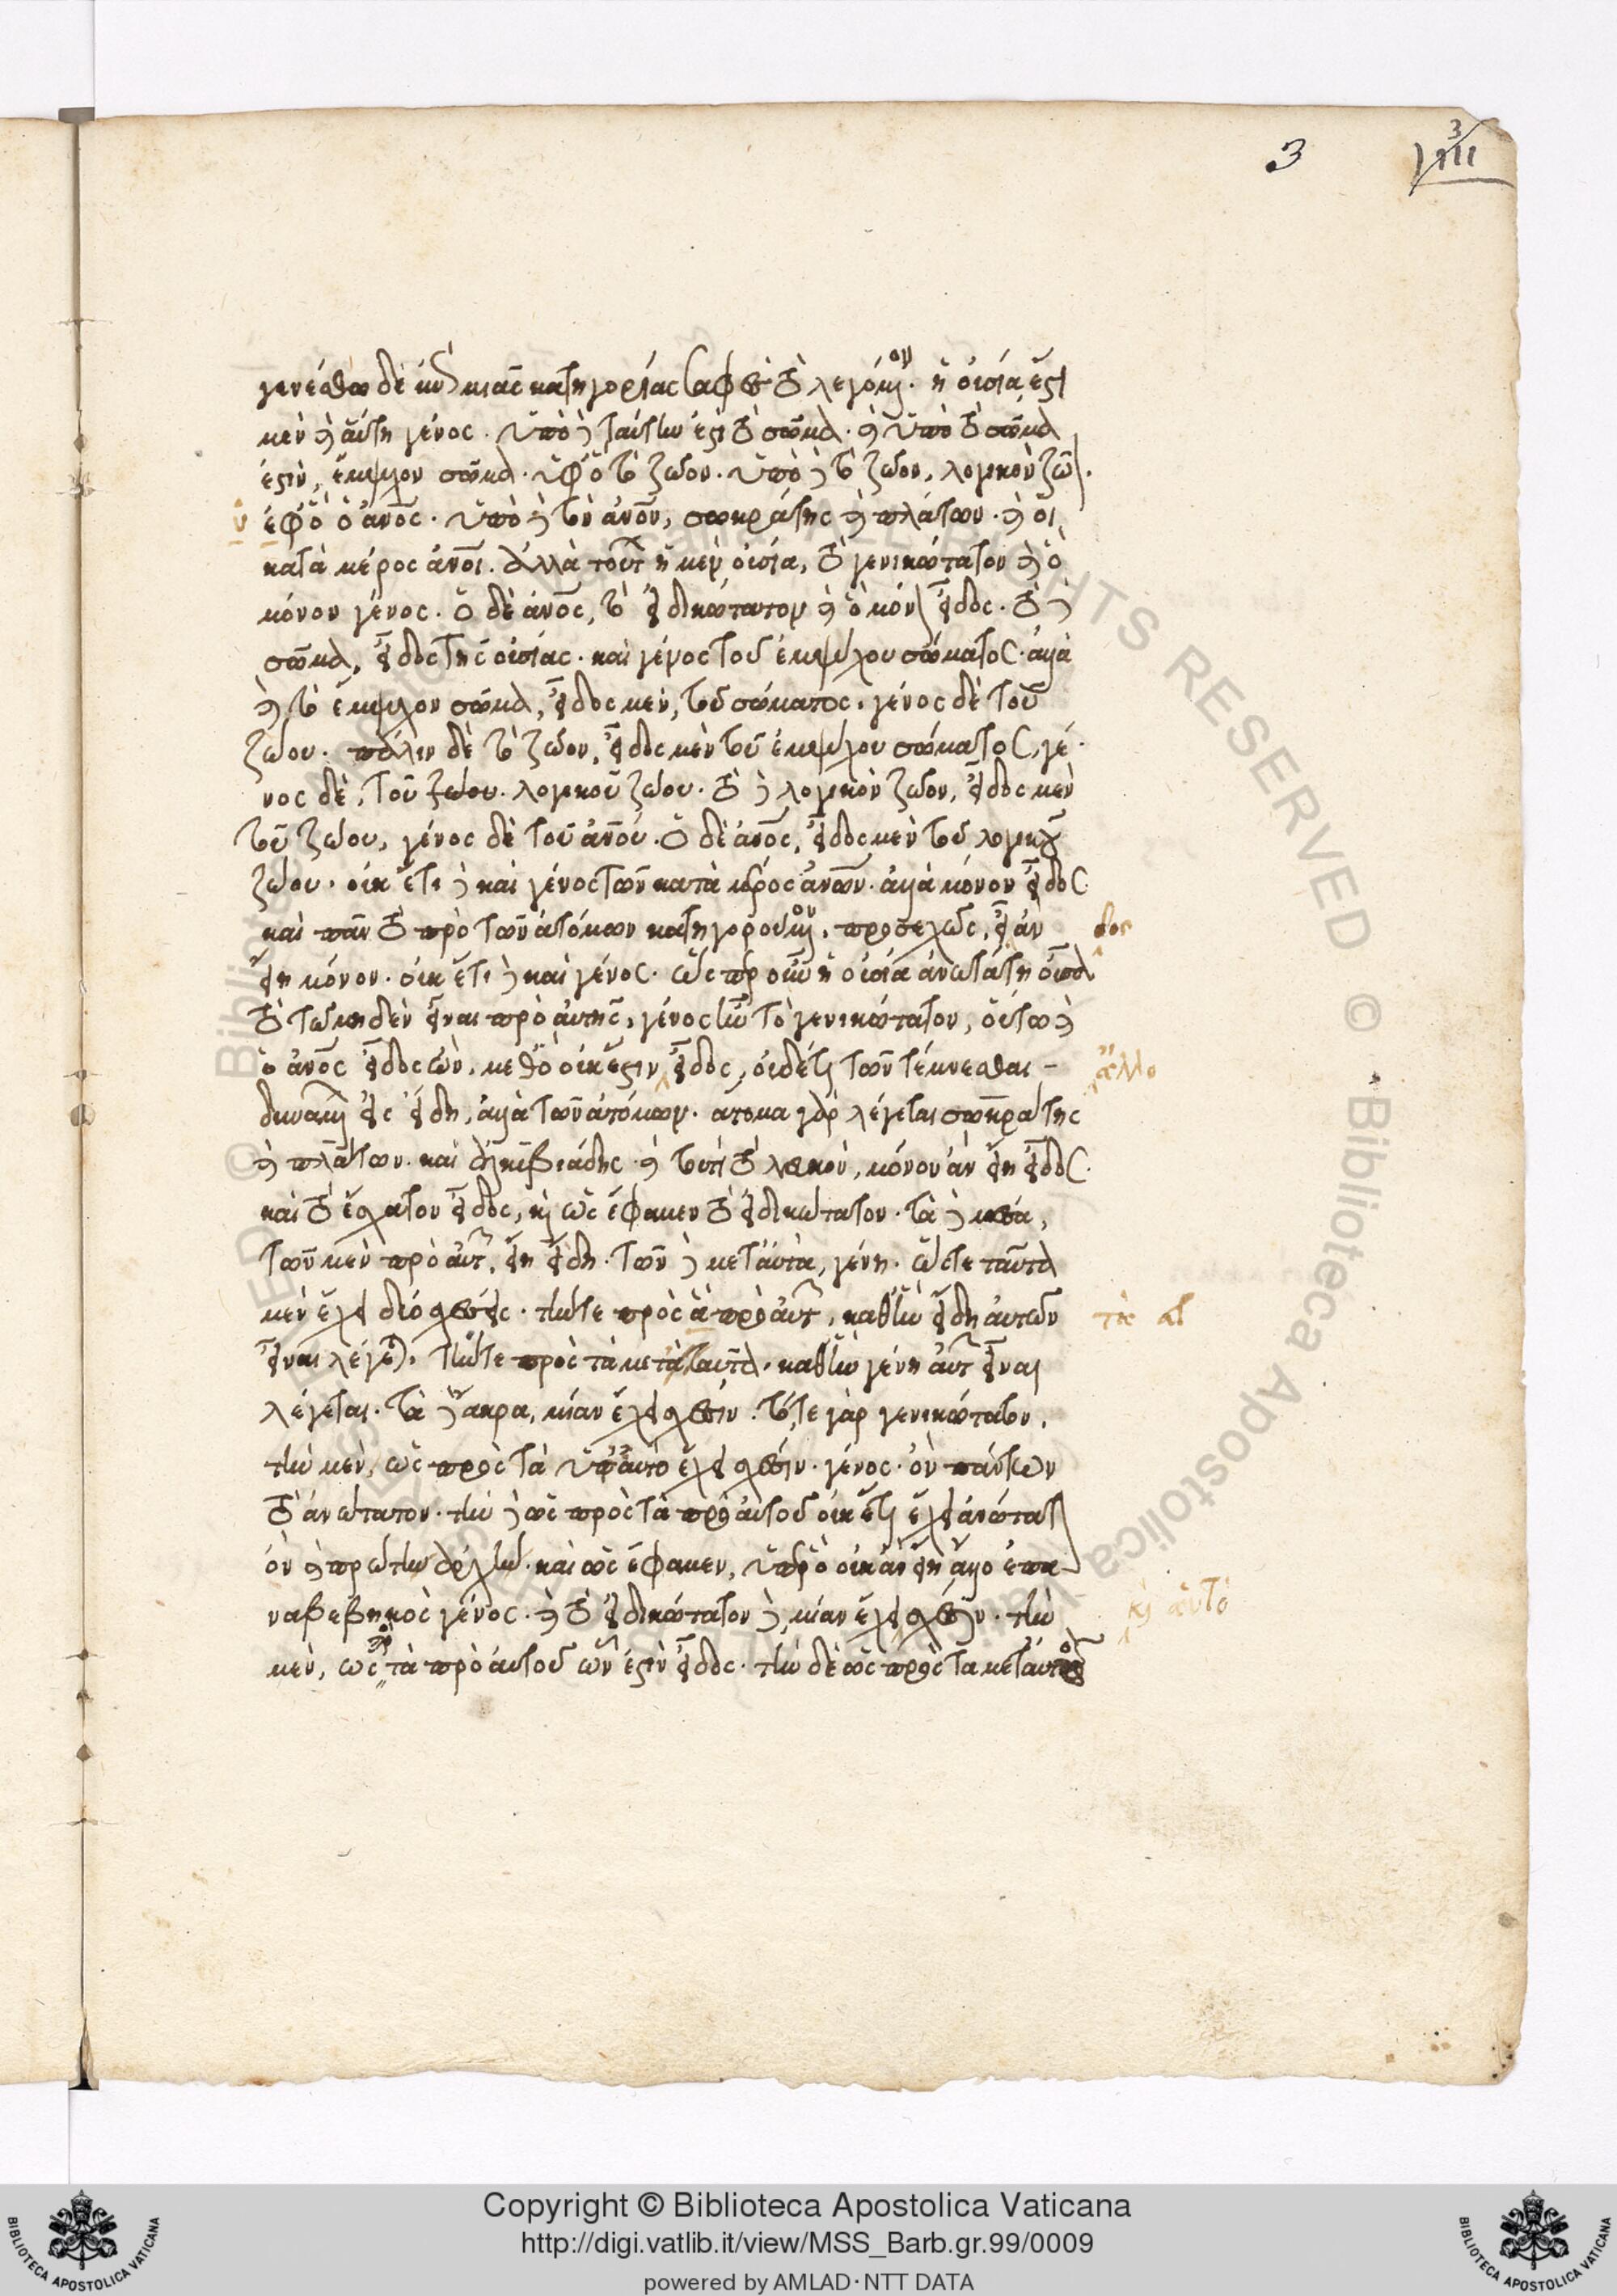 3
3
γενέσθω δὲ ἐπὶ μιᾶς κατηγορίας σαφὲς τὸ λεγόμενον. ἡ οὐσία ἔστι
μὲν καὶ αὐτὴ γένος. ὑπὸ δὲ ταύτην ἐστὶ τὸ σῶμα. καὶ ὑπὸ τὸ σῶμα
ἐστὶν, ἔμψυχον σῶμα. ὑφ' ὃ τὸ ζῶον. ὑπὸ δὲ τὸ ζῶον, λογικὸν ζῶον.
ὑ
ἐφ' ὃ ὁ ἄνος. ὑπὸ δὲ τὸν ἄνον, σωκράτης καὶ πλάτων. καὶ οἱ
κατὰ μέρος ἄνοι. ἀλλὰ τούτων ἡ μὲν οὐσία, τὸ γενικώτατον καὶ ὃ
μόνον γένος. ὁ δὲ ἄνος, τὸ εἰδικώτατον καὶ ὃ μόνον εἶδος. τὸ δὲ
σῶμα, εἶδος τῆς οὐσίας. καὶ γένος τοῦ ἐμψύχου σώματος. ἀλλὰ
καὶ τὸ ἔμψυχον σῶμα, εἶδος μὲν, τοῦ σώματος. γένος δὲ τοῦ
ζώου. πάλιν δὲ τὸ ζῶον, εἶδος μὲν τοῦ ἐμψύχου σώματος, γέ-
νος δὲ, τοῦ ζώου. λογικοῦ ζώου. τὸ δὲ λογικὸν ζῶον, εἶδος μὲν
τοῦ ζώου, γένος δὲ τοῦ ἄνου. ὁ δὲ ἄνος, εἶδος μὲν τοῦ λογικοῦ
ζώου. οὐκ ἔτι δὲ καὶ γένος τῶν κατὰ μέρος ἄνων. ἀλλὰ μόνον εἶδος.
καὶ πᾶν τὸ πρὸ τῶν ἀτόμων κατηγορούμενον, προσεχῶς, εἶ ἂν
δος
εἴη μόνον. οὐκ ἔτι δὲ καὶ γένος. ὥσπερ οὖν ἡ οὐσία ἀνωτάτη οὖσα
τὸ τῷ μηδὲν εἶναι πρὸ αὐτῆς, γένος ἦν τὸ γενικώτατον, οὕτω καὶ
ὁ ἄνος εἶδος ὢν, μεθ' ὃ οὐκ ἔστιν εἶδος, οὐδέ τι τῶν τέμνεσθαι -
ἄλλο
δυναμένων εἰς εἴδη, ἀλλὰ τῶν ἀτόμων. ἄτομα γὰρ λέγεται σωκράτης
καὶ πλάτων. καὶ ἀλκιβιάδης. καὶ τουτὶ τὸ λευκὸν, μόνον ἂν εἴη εἶδος.
καὶ τὸ ἔσχατον εἶδος, καὶ ὡς ἔφαμεν τὸ εἰδικώτατον. τὰ δὲ μέσα,
τῶν μὲν πρὸ αὐτῶν, εἴη εἴδη. τῶν δὲ μετ' αὐτὰ, γένη. ὥστε ταῦτα
μὲν ἔχει δύο σχέσεις. τήν τε πρὸς ἃ πρὸ αὐτῶν, καθ' ἣν εἴδη αὐτῶν
τὰ
εἶναι λέγεται, τήν τε πρὸς τὰ μετὰ ταῦτα. καθ' ἣν γένη αὐτῶν εἶναι
λέγεται. τὰ δὲ ἄκρα, μίαν ἔχει σχέσιν. τό, τε γὰρ γενικώτατον.
τὴν μὲν, ὡς πρὸς τὰ ὑφ' αὑτὸ ἔχει σχέσιν. γένος. ὂν πάντων
τὸ ἀνώτατον. τὴν δὲ ὡς πρὸς τὰ πρὸ αὐτοῦ οὐκ ἔτι ἔχει ἀνώτατον
ὂν καὶ πρώτην ἀρχήν. καὶ ὡς ἔφαμεν, ὑπὲρ ὃ οὐκ ἂν εἴη ἄλλο ἐπα-
ναβεβηκὸς γένος. καὶ τὸ εἰδικώτατον δὲ, μίαν ἔχει σχέσιν. τὴν
καὶ αὐτὸ
μὲν, ὡς πρὸς τὰ πρὸ αὐτοῦ ὧν ἐστὶν εἶδος. τὴν δὲ ὡς πρὸς τὰ μετ' αὐτὸ
Copyright © Biblioteca Apostolica Vaticana
http://digi.vatlib.it/view/MSS_Barb.gr.99/0009
powered by AMLAD · NTT DATA
BIBLIOTECA APOSTOLICA VATICANA
BIBLIOTECA APOSTOLICA VATICANA